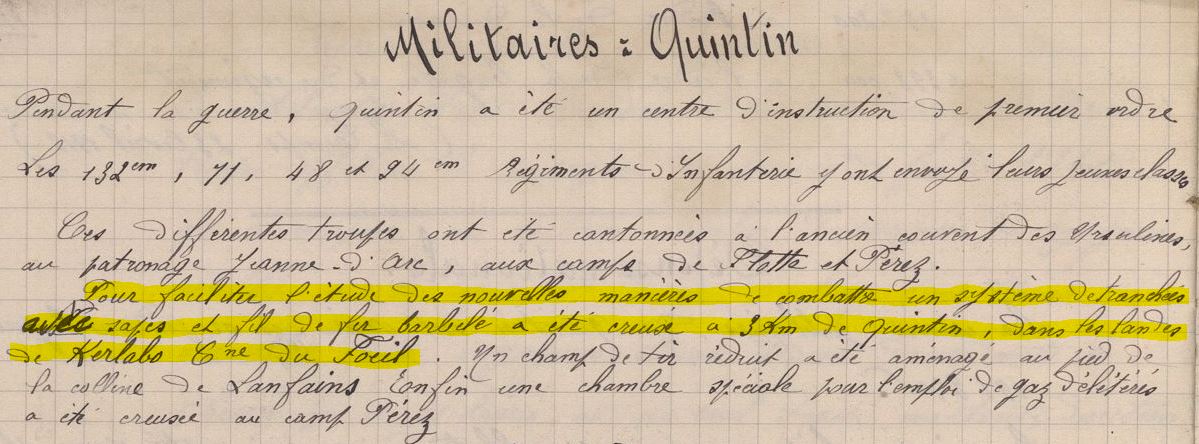 Militaires à Quintin
Pendant la guerre, Quintin a été un centre d'instruction de premier ordre
Les 132em, 71, 48 et 94em Régiments d'Infanterie y ont envoyé leurs jeunes classes
Ces différentes troupes ont été cantonnées à l'ancien couvent des Ursulines,
au patronage Jeanne-d'Arc, aux camps de Flotte et Pérez.
Pour faciliter l'étude des nouvelles manières de combattre un système de tranchées
avec sapes et fil de fer barbelé a été creusé à 3 Km de Quintin, dans les landes
de Kerlabo Cne du Foeil. Un champ de tir réduit a été aménagé au pied de
la colline de Lanfains Enfin une chambre spéciale pour l'emploi de gaz délétères
a été creusée au camp Pérez